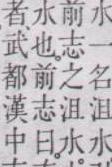 水一名沮水
前志之沮水
水也前志曰
者武都漢中